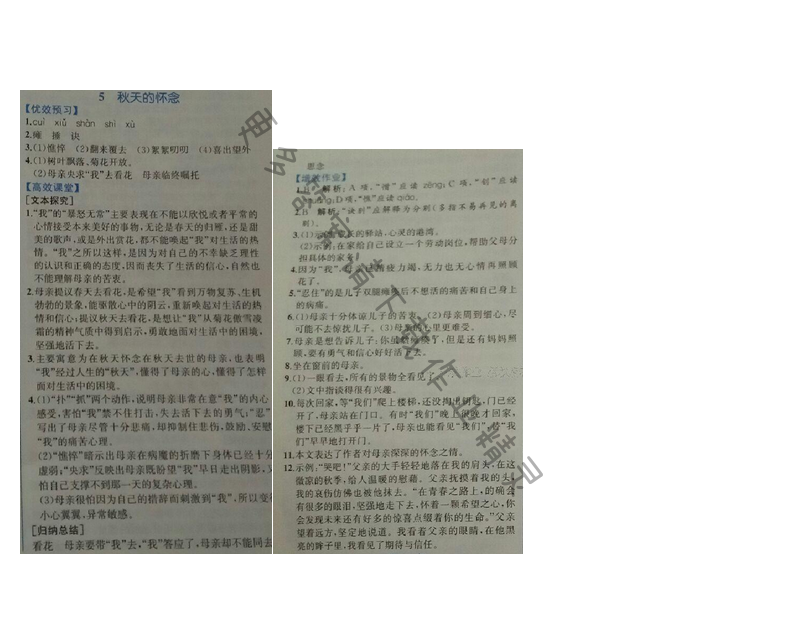 5 秋天的怀念
【优效预习】
1.cuī xiǔ shàn shì xù
2.瘫 捶 诀
3.(1)憔悴 (2)翻来覆去 (3)絮絮叨叨 (4)喜出望外
4.(1)树叶飘落、菊花开放。
(2)母亲央求“我”去看花 母亲临终嘱托
【高效课堂】
[文本探究]
1.“我”的“暴怒无常”主要表现在不能以欣悦或者平常的
心情接受本来美好的事物,无论是春天的归雁,还是甜
美的歌声,或是外出赏花,都不能唤起“我”对生活的热
情。“我”之所以这样,是因为对自己的不幸缺乏理性
的认识和正确的态度,因而丧失了生活的信心,自然也
不能理解母亲的苦衷。
2.母亲提议春天去看花,是希望“我”看到万物复苏、生机
勃勃的景象,能驱散心中的阴云,重新唤起对生活的热
情和信心;提议秋天去看花,是想让“我”从菊花傲雪凌
霜的精神气质中得到启示,勇敢地面对生活中的困境,
坚强地活下去。
3.主要寓意为在秋天怀念在秋天去世的母亲,也表明
“我”经过人生的“秋天”,懂得了母亲的心,懂得了怎样
面对生活中的困境。
4.(1)“扑”“抓”两个动作,说明母亲非常在意“我”的内心
感受,害怕“我”禁不住打击,失去活下去的勇气;“忍”
写出了母亲尽管十分悲痛,却抑制住悲伤,鼓励、安慰
“我”的痛苦心理。
(2)“憔悴”暗示出母亲在病魔的折磨下身体已经十分
虚弱;“央求”反映出母亲既盼望“我”早日走出阴影,又
怕自己支撑不到那一天的复杂心理。
(3)母亲很怕因为自己的措辞而刺激到“我”,所以变得
小心翼翼,异常敏感。
[归纳总结]
看花 母亲要带“我”去,“我”答应了,母亲却不能同去
思念
【增效作业】
1.B 解析:A项,“憎”应读 zēng;C项,“创”应读
chuāng;D项,“憔”应读 qiáo。
2.B 解析:“诀别”应解释为分别(多指不易再见的离
别)。
3.(1)示例:成长的驿站、心灵的港湾。
(2)示例:在家给自己设立一个劳动岗位,帮助父母分
担具体的家务。
4.因为“我”,母亲已精疲力竭,无力也无心情再照顾
花了。
5.“忍住”的是儿子双腿瘫痪后不想活的痛苦和自己身上
的病痛。
6.(1)母亲十分体谅儿子的苦衷。(2)母亲周到细心,尽
可能不去惊扰儿子。(3)母亲的心里更难受。
7.母亲是想告诉儿子:你虽瘫痪了,但是还有妈妈照
顾,要有勇气和信心好好活下去。
8.坐在窗前的母亲。
9.(1)一眼看去,所有的景物全看见了
(2)文中指谈得很有兴趣。
10.每次回家,等“我们”爬上楼梯,还没掏出钥匙,门已经
开了,母亲站在门口。有时“我们”晚上很晚才回家,
楼下已经黑乎乎一片了,母亲也能看见“我们”,替“我
们”早早地打开门。
11.本文表达了作者对母亲深深的怀念之情。
12.示例:“哭吧!”父亲的大手轻轻地落在我的肩头,在这
微凉的秋季,给人温暖的慰藉。父亲抚摸着我的头,
我的哀伤仿佛也被他抹去。“在青春之路上,的确会
有很多的眼泪,坚强地走下去,怀着一颗希望之心,你
会发现未来还有好多的惊喜点缀着你的生命。”父亲
望着远方,坚定地说道。我看着父亲的眼睛,在他黑
亮的眸子里,我看见了期待与信任。